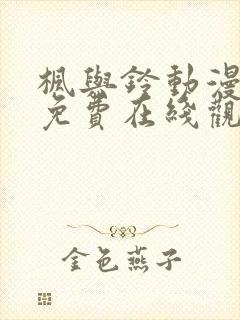 楓與鈴動漫
免費在綫觀
金色燕子